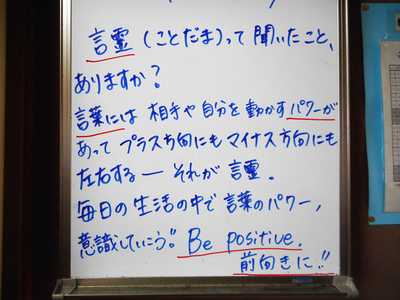 言霊(ことだま)って聞いたこと、
ありますか?
言葉には相手や自分を動かすパワーが
あってプラス方向にもマイナス方向にも
左右する―それが言霊.
毎日の生活の中で言葉のパワー,
意識していこう!! Be positive.
前向きに!!